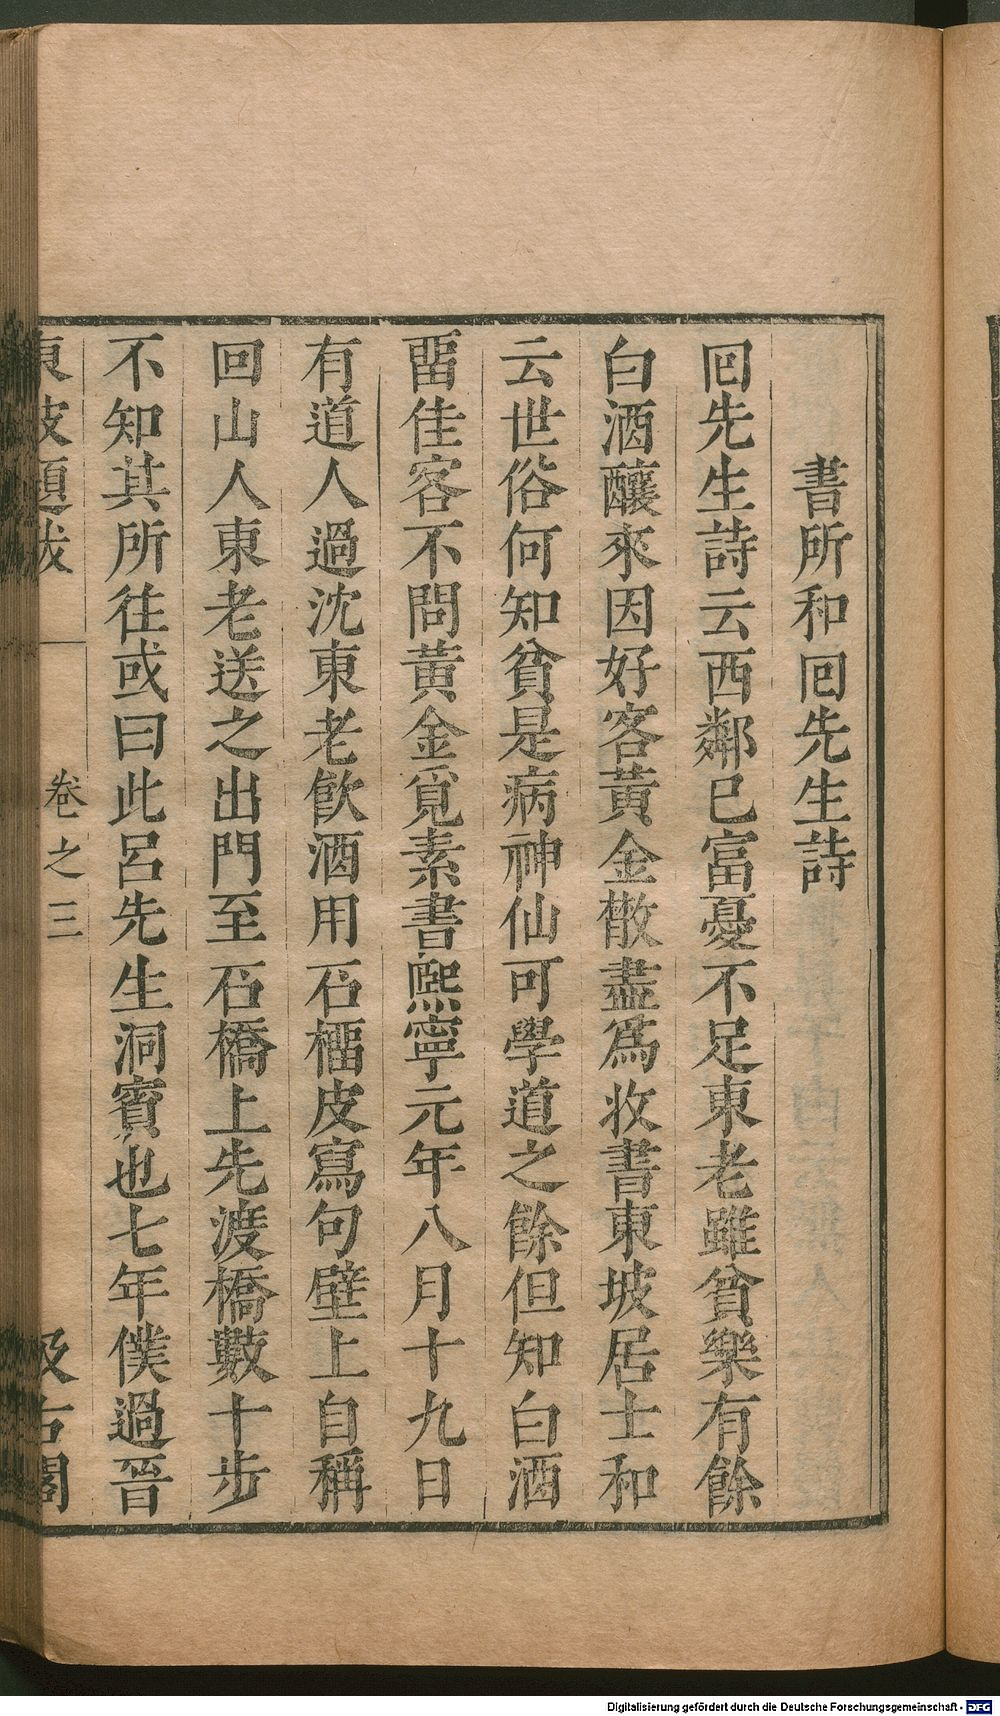 書所和囘先生詩
囘先生詩云西鄰已富憂不足東老雖貧樂有餘
白酒釀來因好客黃金散盡爲收書東坡居士和
云世俗何知貧是病神仙可學道之餘但知白酒
畱佳客不問黃金覓素書熙寧元年八月十九日
有道人過沈東老飮酒用石榴皮寫句壁上自稱
回山人東老送之出門至石橋上先渡橋數十步
不知其所往或曰此呂先生洞賓也七年僕過晉
東坡題跋 卷之三 汲古閣
Digitalisierung gefördert durch die Deutsche Forschungsgemeinschaft - DFG